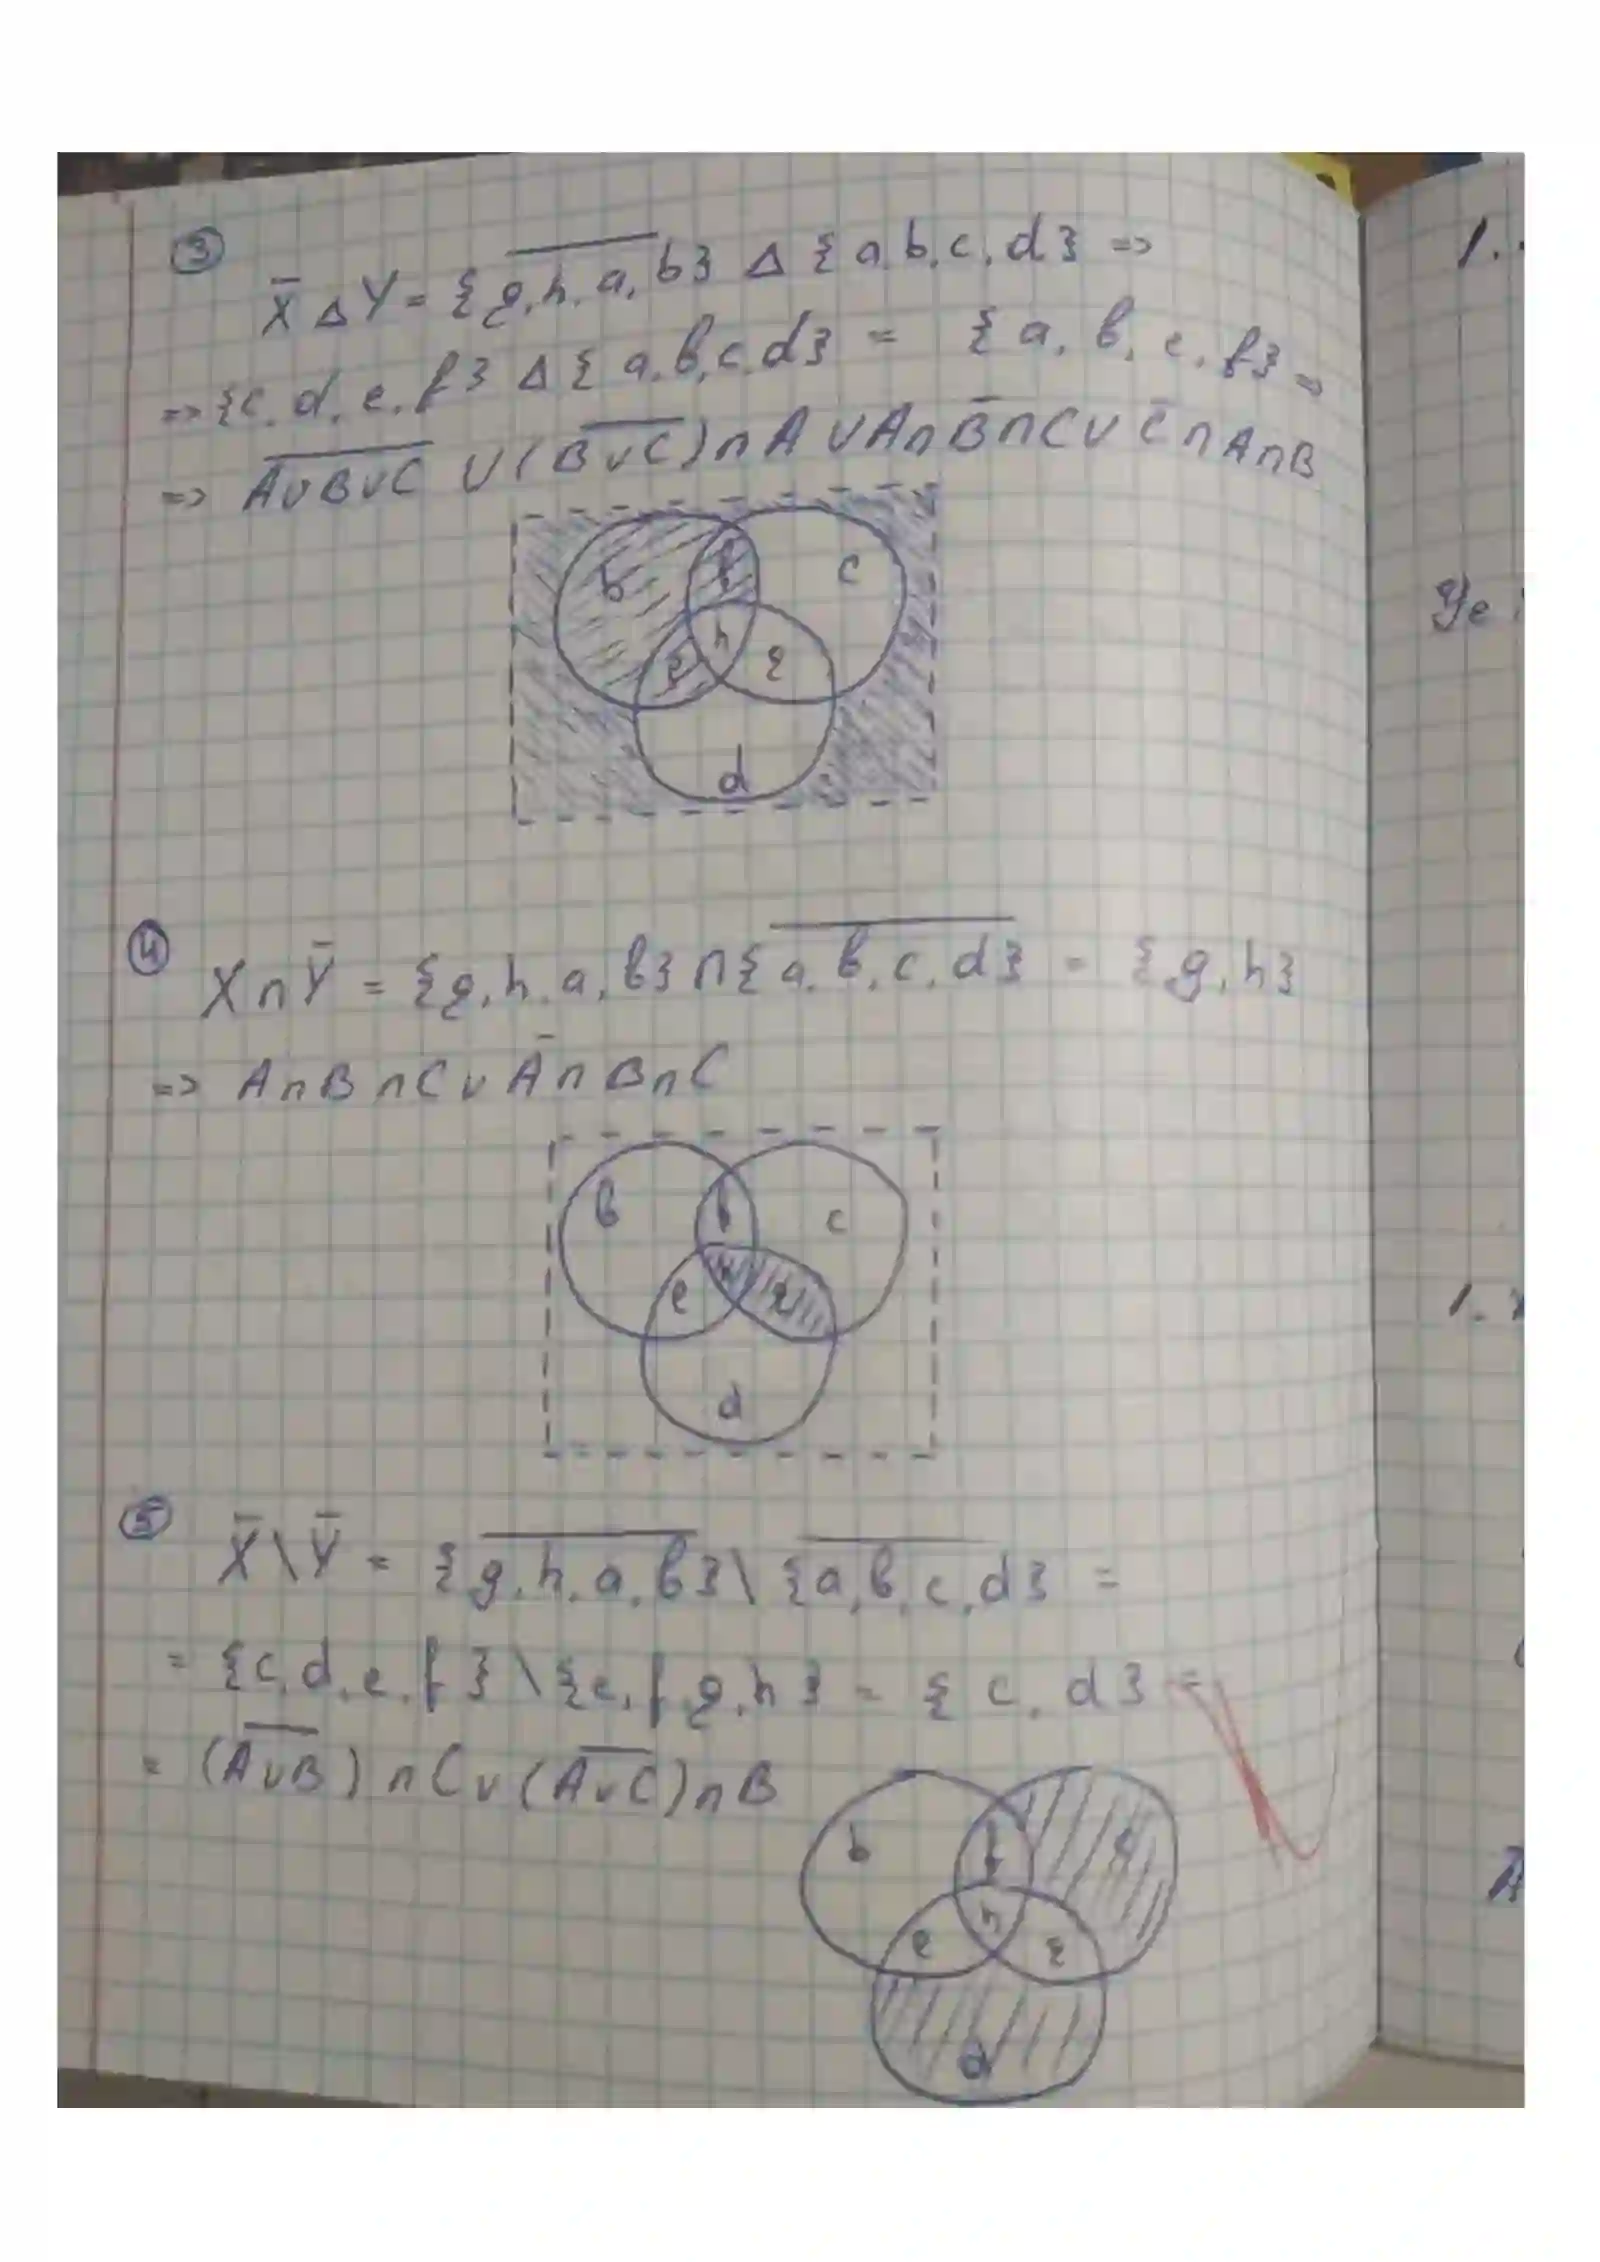 ③
X̅ Δ Y = {g, h, a, b}̅ Δ {a, b, c, d} =>
=> {c, d, e, f} Δ {a, b, c, d} = {a, b, e, f} =>
=> A∪B∪C̅ ∪ (B∪C̅) ∩ A ∪ A ∩ B̅ ∩ C ∪ C̅ ∩ A ∩ B
b f c
h
e g
d
④
X ∩ Y̅ = {g, h, a, b} ∩ {a, b, c, d}̅ = {g, h}
=> A ∩ B ∩ C ∪ A̅ ∩ B ∩ C
b f c
h
e g
d
⑤
X̅ \ Y̅ = {g, h, a, b}̅ \ {a, b, c, d}̅ =
= {c, d, e, f} \ {e, f, g, h} = {c, d} =
= (A∪B̅) ∩ C ∪ (A∪C̅) ∩ B
b f c
h
e g
d
1.
Уе
1.
A